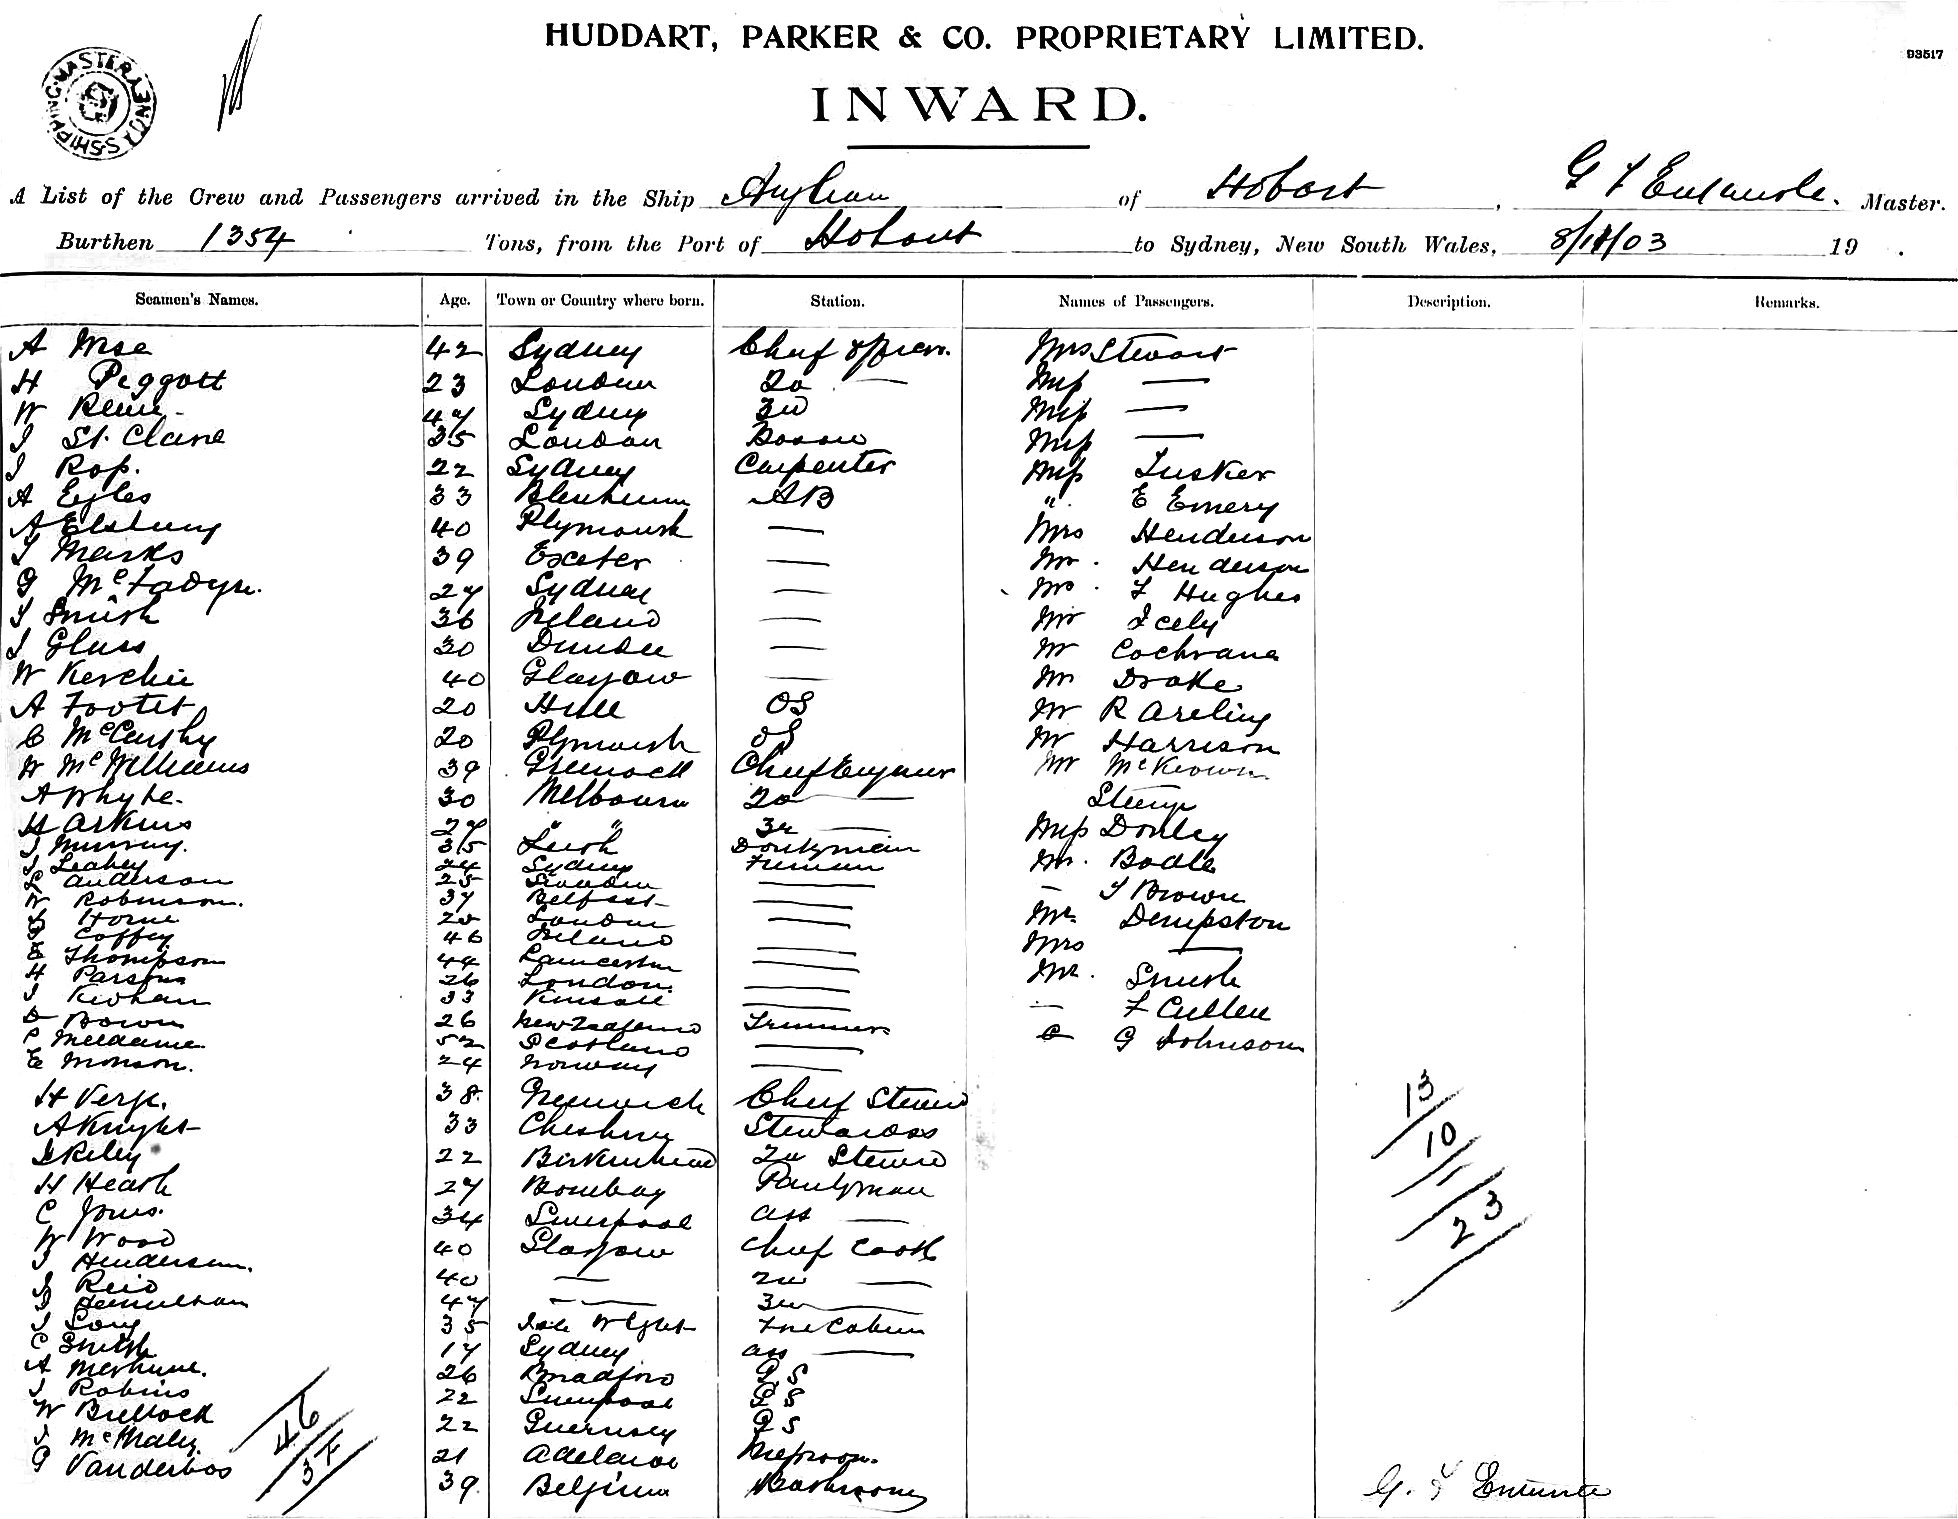 HUDDART, PARKER & CO. PROPRIETARY LIMITED.
93517
INWARD.
SHIPPING MASTER SYDNEY
A List of the Crew and Passengers arrived in the Ship Anglian of Hobart, G Master.
Burthen 1354 Tons, from the Port of Hobart to Sydney, New South Wales, 8/11/03 19 .
Seamen's Names. Age. Town or Country where born. Station. Names of Passengers. Description. Remarks.
A 42 Sydney Chief Officer. Mrs Stewart
H Peggott 23 London 2d — Miss —
W 47 Sydney 3d Miss —
J St. Clare 35 London Bosun Miss —
J Ross. 22 Sydney Carpenter Miss Tusker
A Eyles 33 Blenheim AB " E Emery
A 40 Plymouth — Mrs Henderson
J Marks 39 Exeter — Mr. Henderson
G McFadyn. 27 Sydney — F Hughes
J Smith 36 Ireland — Mr Icely
J Glass 30 Dundee — Mr Cochrane
W Kerchie 40 Glasgow — Mr Drake
A Footet 20 Hull OS Mr R
C McCarthy 20 Plymouth OS Mr Harrison
W McWilliams 39 Greenock Chief Engineer Mr McKeown
A Whyte. 30 Melbourne 2d —
H Arkins 27 " " 3d — Miss Donley
J Murray. 35 Leith Donkyman Mr. Bodle
J Leahey 24 Sydney Firemen — T Brown
Anderson 25 London — Mr. Dempston
W Robinson. 37 Belfast — Mrs —
Horne 25 London — Mr. Smith
Coffey 46 Ireland — — F Cullen
E Thompson 44 — G Johnson
H Parsons 26 London. —
J Keohan 33 Kinsale —
D Bown 26 New Zealand Trimmers
P 52 Scotland —
E Monson. 24 Norway —
H 38. Greenwich Chief Steward
A Knight 33 Cheshire Stewardess
J Riley 22 Birkenhead 2d Steward
H Heath 27 Bombay Pantryman
C Jones. 34 Liverpool ass —
W Wood 40 Glasgow Chief Cook
J Henderson. 40 — 2d —
J Reid 47 — 3d —
Hamilton 35 Isle Wight Fore Cabin
J Long 17 Sydney ass —
C Smith 26 Bradford G S
A 22 Liverpool G S
J Robins 22 Guernsey G S
W Bullock 21 Adelaide Messroom.
J
G Vanderbos 39. Belgium
13
10
23
46
37
G.